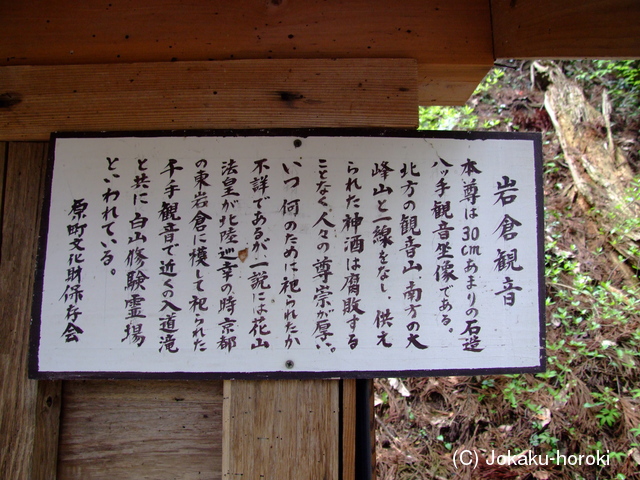 岩倉観音
本尊は30cmあまりの石造
八ッ手観音坐像である。
北方の観音山、南方の大
峰山と一線をなし、供え
られた神酒は腐敗する
ことなく、人々の尊崇が厚い。
いつ何のために祀られたか
不詳であるが、一説には花山
法皇が北陸巡幸の時京都
の東岩倉に模して祀られた
千手観音で近くの入道滝
と共に白山修験霊場
といわれている。
原町文化財保存会
(C) Jokaku-horoki